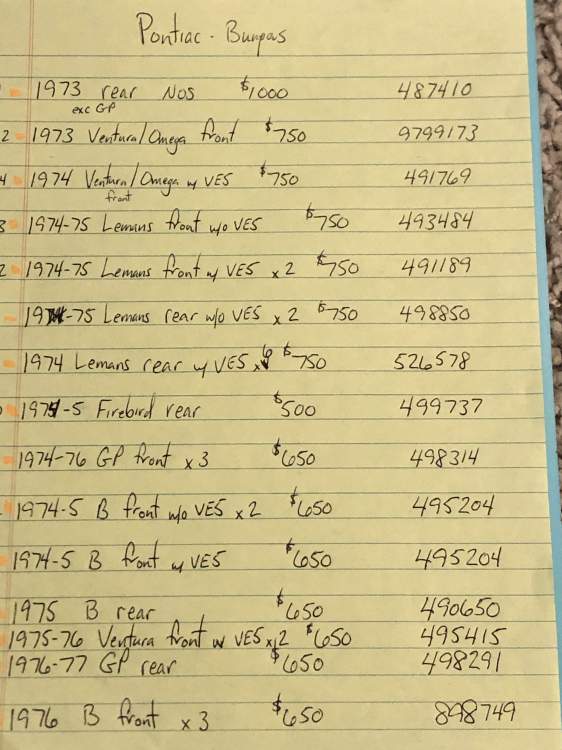 Pontiac - Bumpers
1973 rear NOS $1000 487410
exc GP
2 1973 Ventura/Omega front $750 9799173
4 1974 Ventura/Omega w VE5 $750 491769
front
3 1974-75 Lemans front w/o VE5 $750 493484
2 1974-75 Lemans front w/ VE5 x 2 $750 491189
-75 Lemans rear w/o VE5 x 2 $750 498850
1974 Lemans rear w/ VE5 x $750 526578
-5 Firebird rear $500 499737
1974-76 GP front x 3 $650 498314
1974-5 B front w/o VE5 x 2 $650 495204
1974-5 B front w/ VE5 $650 495204
1975 B rear $650 490650
1975-76 Ventura front w VE5 x 2 $650 495415
1976-77 GP rear $650 498291
1976 B front x 3 $650 898749